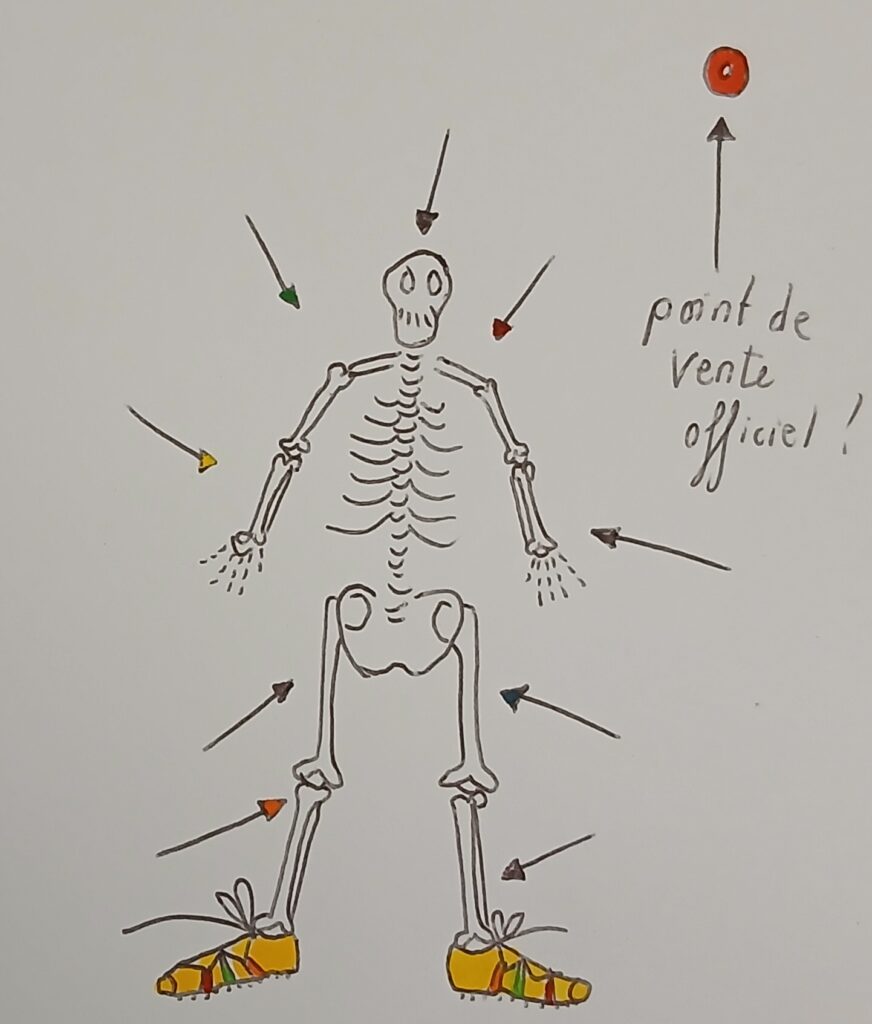 point de
vente
officiel !